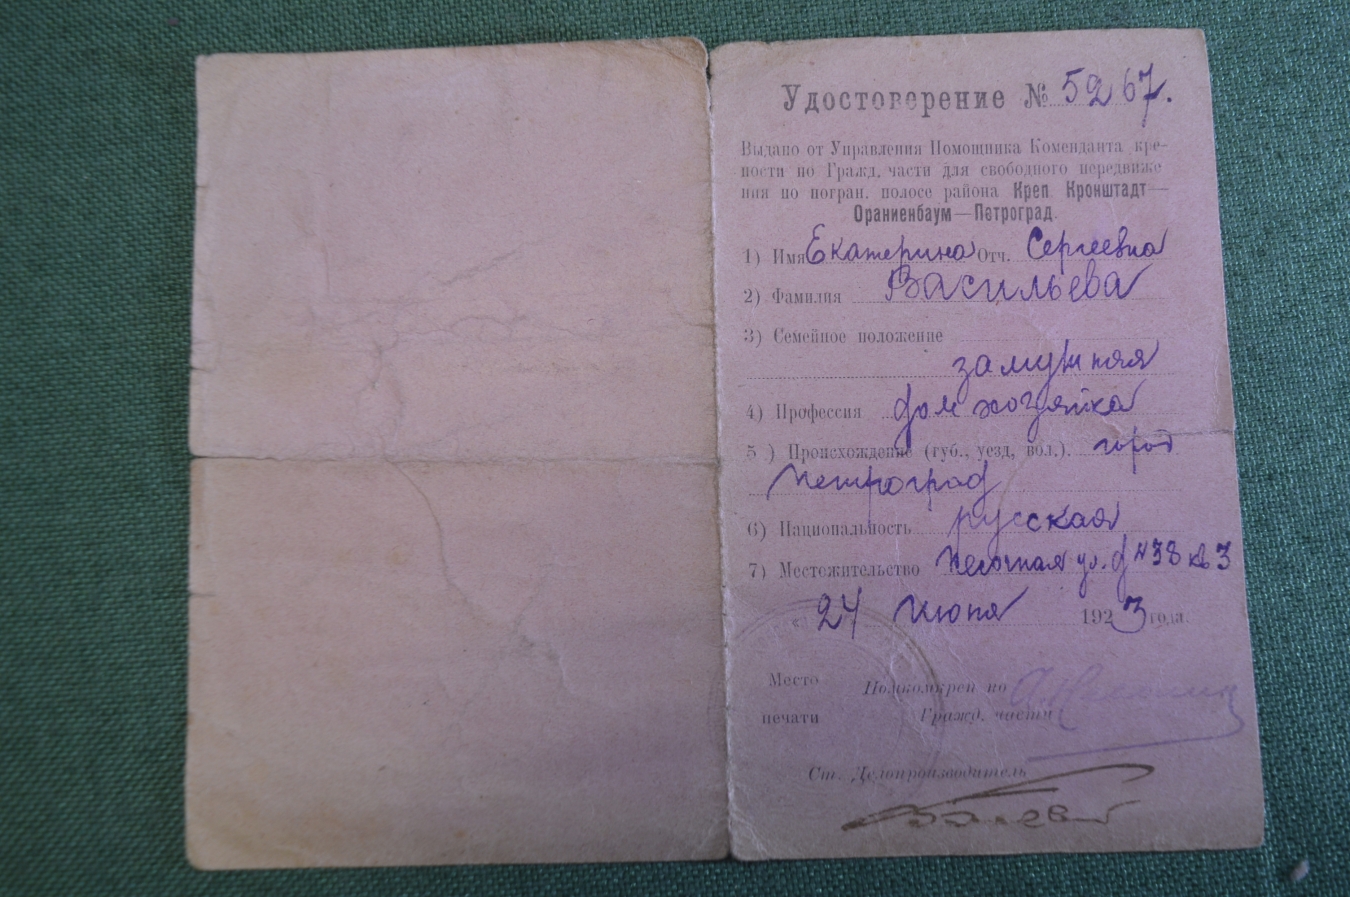 Удостоверение № 5267.
Выдано от Управления Помощника Коменданта кре-
пости по Гражд. части для свободного передвиже
ния по погран. полосе района Креп. Кронштадт—
Ораниенбаум—Петроград.
1) Имя Екатерина Отч. Сергеевна
2) Фамилия Васильева
3) Семейное положение
замужняя
4) Профессия дом хозяйка
5) Происхождение (губ., уезд, вол.). город
Петроград
6) Национальность русская
7) Местожительство Песочная ул. д № 38 кв 3
24 июня 1923 года.
Место Помкомкреп по
печати Гражд. части
Ст. Делопроизводитель